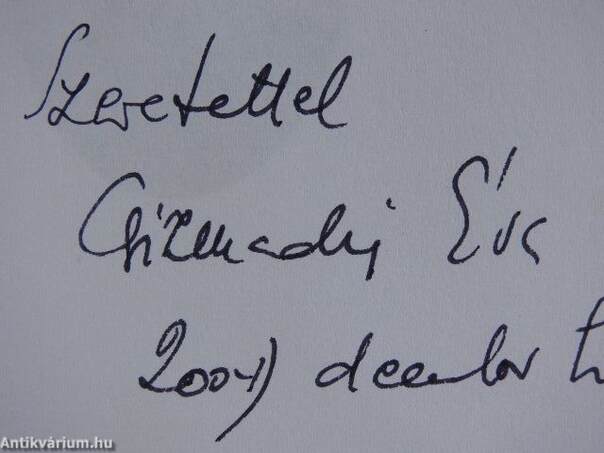 Szeretettel
Csizmadia Éva
2004 december
Antikvárium.hu